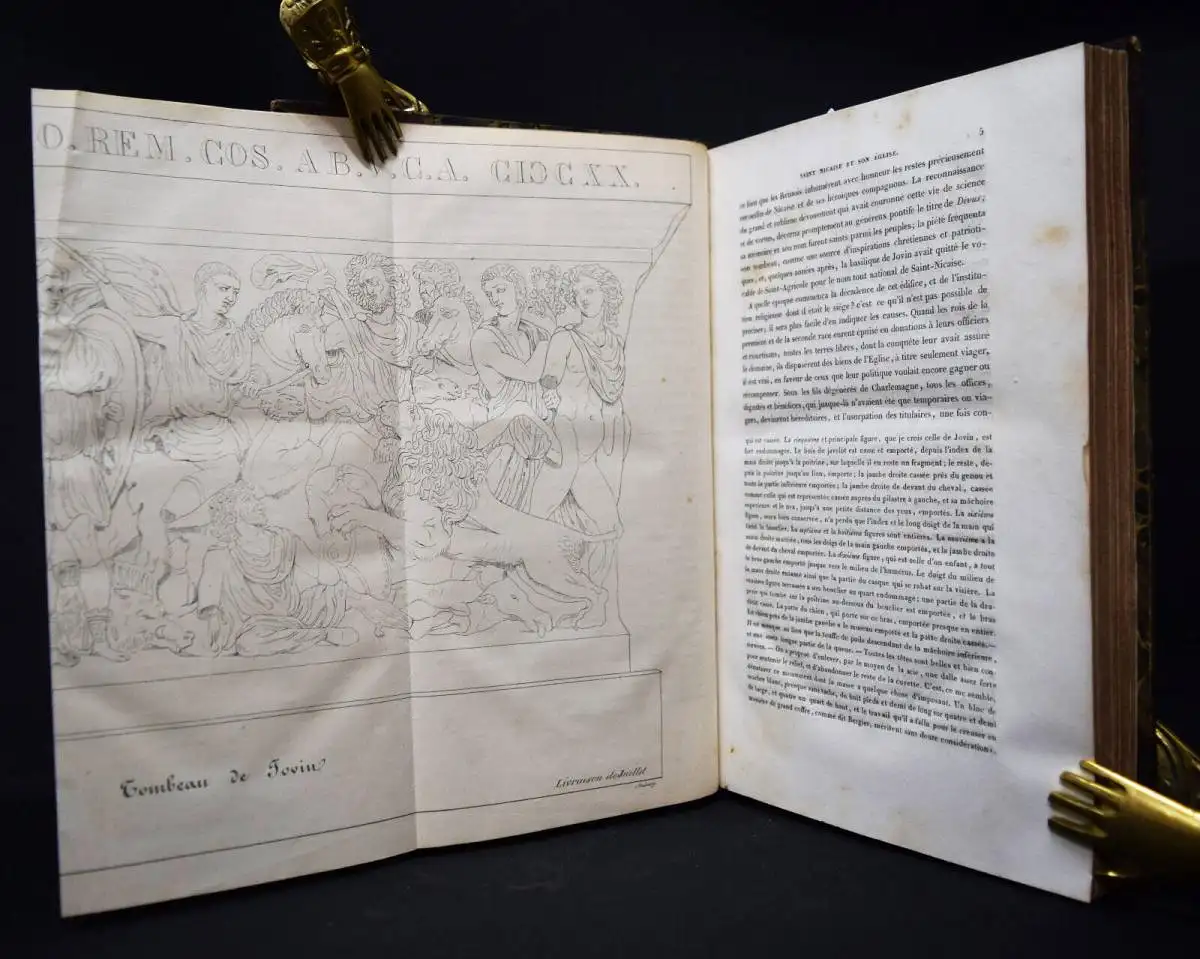 O. REM. COS. AB. .C.A. CIƆCXX.
Tombeau de Jovin
Livraison de Juillet
5
SAINT NICAISE ET SON ÉGLISE.
ce lieu que les Rémois inhumèrent avec honneur les restes précieusement
recueillis de Nicaise et de ses héroïques compagnons. La reconnaissance
du grand et sublime dévouement qui avait couronné cette vie de science
et de vertus, décerna promptement au généreux pontife le titre de Divus;
sa mémoire et son nom furent saints parmi les peuples; la piété fréquenta
son tombeau, comme une source d'inspirations chrétiennes et patrioti-
ques, et, quelques années après, la basilique de Jovin avait quitté le vo-
cable de Saint-Agricole pour le nom tout national de Saint-Nicaise.
A quelle époque commença la décadence de cet édifice, et de l'institu-
tion religieuse dont il était le siége? c'est ce qu'il n'est pas possible de
préciser; il sera plus facile d'en indiquer les causes. Quand les rois de la
première et de la seconde race eurent épuisé en donations à leurs officiers
et courtisans, toutes les terres libres, dont la conquête leur avait assuré
le domaine, ils disposèrent des biens de l'Eglise, à titre seulement viager,
il est vrai, en faveur de ceux que leur politique voulait encore gagner ou
récompenser. Sous les fils dégénérés de Charlemagne, tous les offices,
dignités et bénéfices, qui jusque-là n'avaient été que temporaires ou via-
gers, devinrent héréditaires, et l'usurpation des titulaires, une fois con-
qui est cassée. La cinquième et principale figure, que je crois celle de Jovin, est
fort endommagée. Le bois de javelot est cassé et emporté, depuis l'index de la
main droite jusqu'à la poitrine, sur laquelle il en reste un fragment; le reste, de-
puis la poitrine jusqu'au lion, emporté; la jambe droite cassée près du genou et
toute la partie inférieure emportée; la jambe droite de devant du cheval, cassée
comme celle qui est représentée cassée auprès du pilastre à gauche, et sa mâchoire
supérieure et le nez, jusqu'à une petite distance des yeux, emportés. La sixième
figure, assez bien conservée, n'a perdu que l'index et le long doigt de la main qui
tient le bouclier. La septième et la huitième figures sont entières. La neuvième a la
main droite mutilée, tous les doigts de la main gauche emportés, et la jambe droite
de devant du cheval emportée. La dixième figure, qui est celle d'un enfant, a tout
le bras gauche emporté jusque vers le milieu de l'humérus. Le doigt du milieu de
la main droite entamé ainsi que la partie du casque qui se rabat sur la visière. La
onzième figure terrassée a son bouclier au quart endommagé; une partie de la dra-
perie qui tombe sur la poitrine au-dessous du bouclier est emportée, et le bras
droit cassé. La patte du chien, qui porte sur ce bras, emportée presque en entier.
Le chien près de la jambe gauche a le museau emporté et la patte droite cassée. —
Il ne manque au lion que la touffe de poils descendant de la mâchoire inférieure,
et une assez longue partie de la queue. — Toutes les têtes sont belles et bien con-
servées. — On a proposé d'enlever, par le moyen de la scie, une dalle assez forte
pour soutenir le relief, et d'abandonner le reste de la cuvette. C'est, ce me semble,
dénaturer ce monument dont la masse a quelque chose d'imposant. Un bloc de
marbre blanc, presque sans tache, de huit pieds et demi de long sur quatre et demi
de large, et quatre un quart de haut, et le travail qu'il a fallu pour le creuser en
manière de grand coffre, comme dit Bergier, méritent sans doute considération.